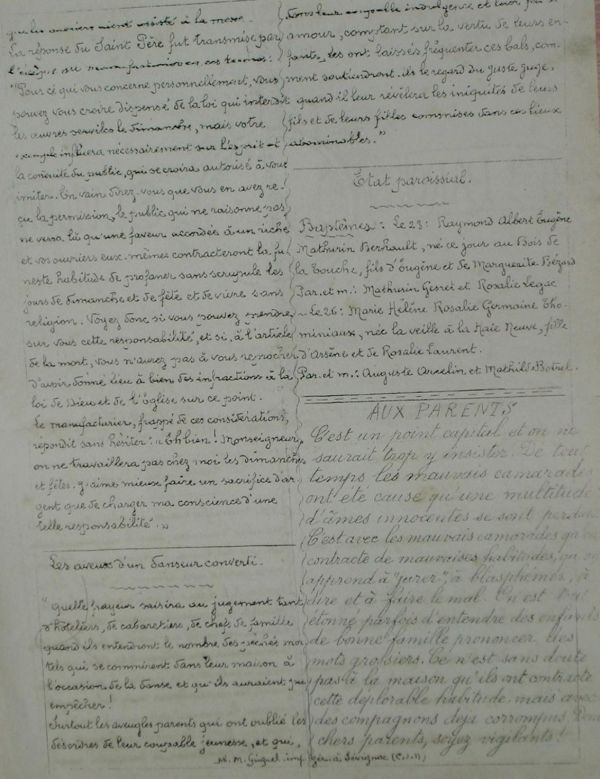 La réponse du Saint Père fut transmise par
"Pour ce qui vous concerne personnellement, vous
pouvez vous croire dispensé de la loi qui interdit
les œuvres serviles le dimanche, mais votre
exemple influera nécessairement sur l'esprit et
la conduite du public, qui se croira autorisé à vous
imiter. En vain direz-vous que vous en avez re-
çu la permission, le public qui ne raisonne pas
ne verra là qu'une faveur accordée à un riche
et vos ouvriers eux-mêmes contracteront la fu
neste habitude de profaner sans scrupule les
jours de dimanche et de fête et de vivre sans
religion. Voyez donc si vous pouvez prendre
sur vous cette responsabilité, et si, à l'article
de la mort, vous n'aurez pas à vous reprocher
d'avoir donné lieu à bien des infractions à la
loi de Dieu et de l'Église sur ce point.
Le manufacturier, frappé de ces considérations,
répondit sans hésiter: "Eh bien! Monseigneur,
on ne travaillera pas chez moi les dimanches
et fêtes. J'aime mieux faire un sacrifice d'ar
gent que de charger ma conscience d'une
telle responsabilité."
Les aveux d'un danseur converti.
"Quelle frayeur saisira au jugement tant
d'hôteliers, de cabaretiers, de chefs de famille
quand ils entendront le nombre des péchés mor
tels qui se commirent dans leur maison à
l'occasion de la danse et qu'ils auraient pu
empêcher!
Surtout les aveugles parents qui ont oublié les
désordres de leur coupable jeunesse, et qui,
amour, constant sur la vertu de leurs en-
fants, les ont laissés fréquenter ces bals, com
ment soutiendront-ils le regard du Juste Juge,
quand il leur révèlera les iniquités de leurs
fils et de leurs filles commises dans ces lieux
abominables."
Etat paroissial.
Baptêmes: Le 23: Raymond Albert Eugène
Mathurin Berhault, né ce jour au Bois de
la Touche, fils d'Eugène et de Marguerite Bézard
Par. et m.: Mathurin Gesret et Rosalie Legac
- Le 26: Marie Hélène Rosalie Germaine Tho-
miniaux, née la veille à la Haie Neuve, fille
d'Arsène et de Rosalie Laurent.
Par. et m.: Auguste Arcelin et Mathilde Botrel.
AUX PARENTS
C'est un point capital et on ne
saurait trop y insister. De tout
temps les mauvais camarades
ont été cause qu'une multitude
d'âmes innocentes se sont perdues
C'est avec les mauvais camarades qu'on
contracte de mauvaises habitudes, qu'on
apprend à "jurer", à blasphémer, à
dire et à faire le mal. On est tout
étonné parfois d'entendre des enfants
de bonne famille prononcer des
mots grossiers. Ce n'est sans doute
pas à la maison qu'ils ont contracté
cette déplorable habitude, mais avec
des compagnons déjà corrompus. Donc
chers parents, soyez vigilants!